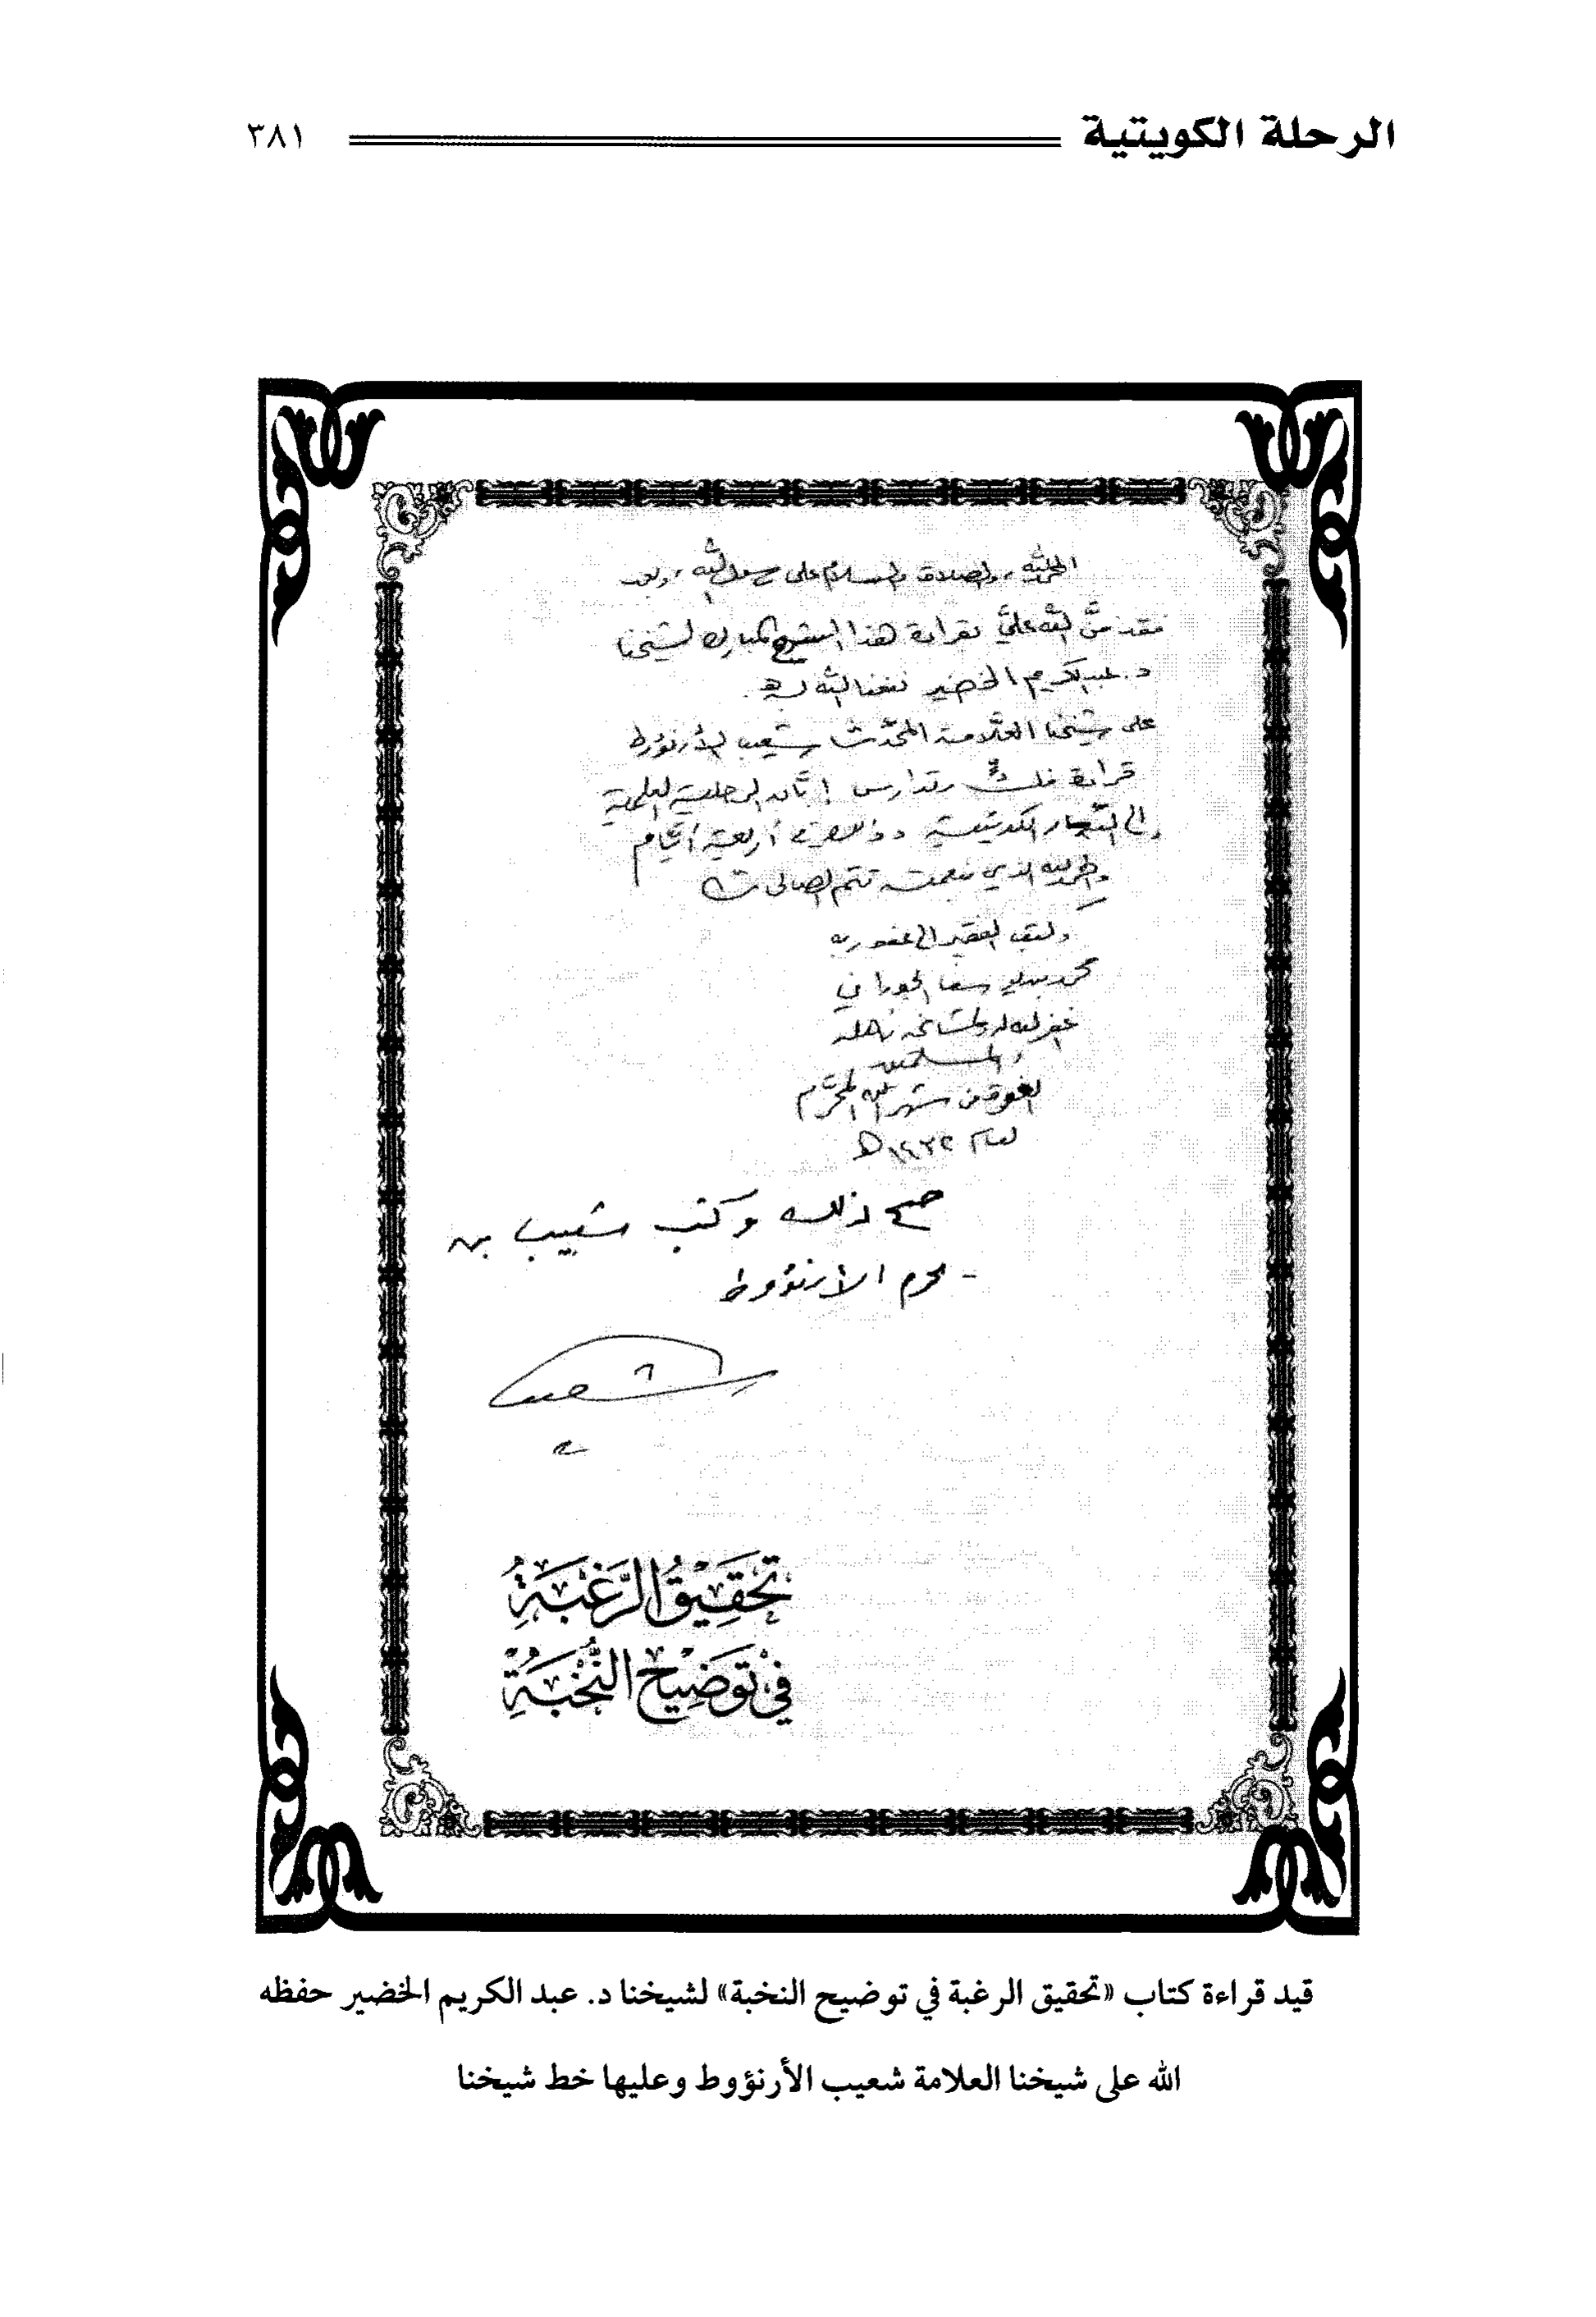 الرحلة الكويتية ٣٨١
الحمد لله، والصلاة والسلام على رسول الله، وبعد
فقد منَّ الله عليَّ بقراءة هذا الشرح المبارك لشيخنا
د. عبد الكريم الخضير نفعنا الله به.
على شيخنا العلّامة المحدّث شعيب الأرنؤوط
قراءة وتدارس إبّان الرحلة العلمية
إلى الديار الكويتية وذلك أربعة أيّام
والحمد لله الذي بنعمته تتم الصالحات
وكتب الفقير إلى عفو ربه
محمد الحوراني
غفر الله له ولمشايخه وأهله
والمسلمين
من شهر الله المحرّم
لعام ١٤٣٢هـ
صح ذلك وكتب شعيب بن
محرم الأرنؤوط
شعيب
تَحْقِيقُ الرَّغْبَةِ
فِي تَوْضِيحِ النُّخْبَةِ
قيد قراءة كتاب «تحقيق الرغبة في توضيح النخبة» لشيخنا د. عبد الكريم الخضير حفظه
الله على شيخنا العلامة شعيب الأرنؤوط وعليها خط شيخنا